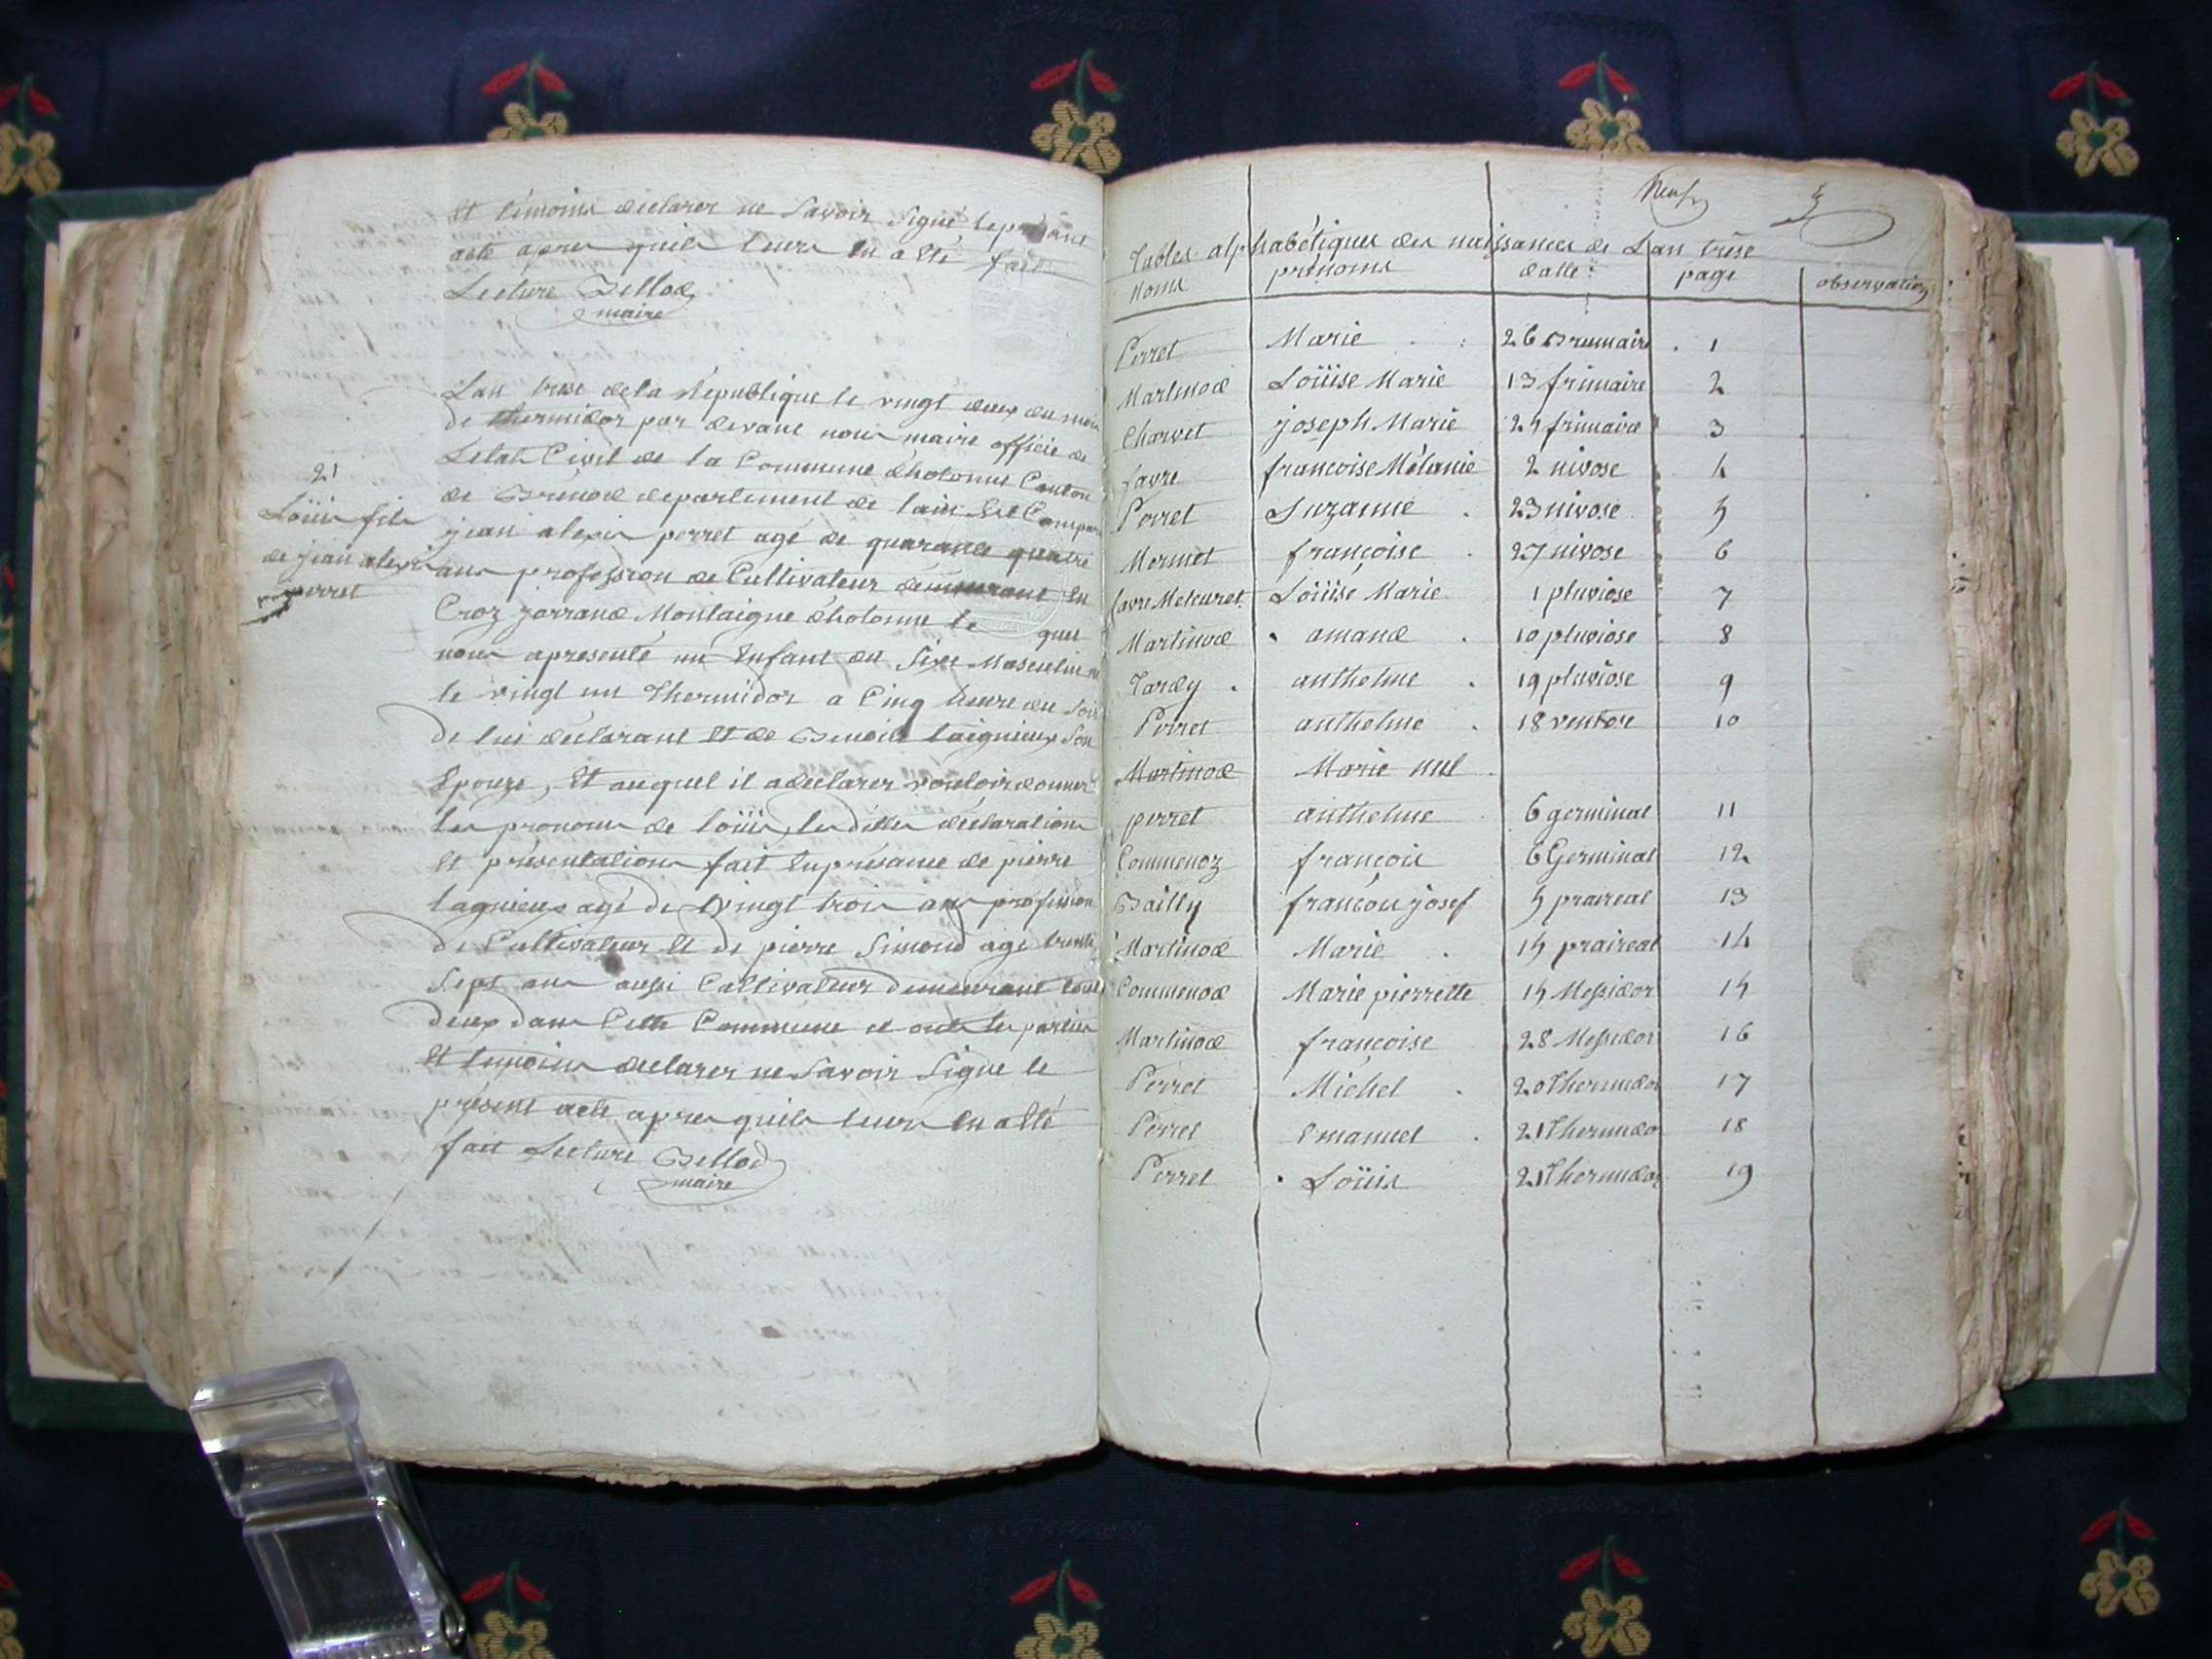 Et témoins déclarer ne Savoir Signé le présant
acte apres quils leurs en a été fait
Lecture Bellod
maire
Lan trese de la République le vingt deux du mois
de thermidor par devant nous maire officié de
Letat Civil de la Commune dhotonne Canton
de Brénod departement de lain Est Comparu
jean alexis perret agé de quarante quatre
ans profession de Cultivateur demeurant en
Croz jarrand Montaigne dhotonne le quel
nous apresenté un Enfant du Sixe Masculin né
le vingt un Thermidor a Cinq heure du Soir
De lui déclarant Et de Benoite laignieux Son
Epouze, Et auquel il adéclarer vouloir donner
les pronoms de loüis, les dittes déclarations
Et présentations fait Enprésance de pierre
lagnieux agé de vingt trois ans profession
de Cultivateur Et de pierre Simond agé trente
Sept ans aussi Cultivateur Demeurant tous
deux dans Cette Commune et onts les parties
Et temoins déclarer ne Savoir Signe le
présent acte apres quils leurs en a été
fait Lecture Bellod
maire
21
Loüis fils
de jean alexis
perret
Neuf 5
Tables alphabétiques des naissances de Lan trese
Noms prénoms datte page observations
Perret Marie 26 Brumaire 1
Martinod Loüise Marie 13 frimaire 2
Charvet joseph Marie 25 frimaire 3
favre francoise Mélanie 2 nivose 4
Perret Suzanne 23 nivose 5
Mermet françoise 27 nivose 6
favre Meteuret Loüise Marie 1 pluviose 7
Martinod amand 10 pluviose 8
Tardy anthelme 19 pluviose 9
Perret anthelme 18 ventose 10
Martinod Marie nul
perret anthelme 6 germinal 11
Commenoz françois 6 Germinal 12
Bailly françois josef 5 praireal 13
Martinod Marie 15 praireal 14
Commenod Marie pierrette 15 Messidor 15
Martinod françoise 28 Messidor 16
Perret Michel 20 Thermidor 17
Perret Emanuel 21 Thermidor 18
Perret Loüis 21 Thermidor 19